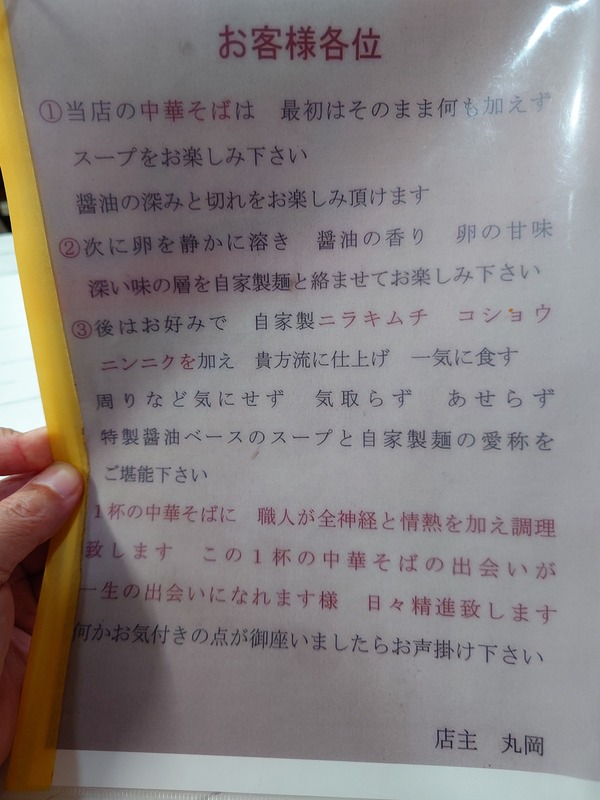 お客様各位
①当店の中華そばは　最初はそのまま何も加えず
スープをお楽しみ下さい
醤油の深みと切れをお楽しみ頂けます
②次に卵を静かに溶き　醤油の香り　卵の甘味
深い味の層を自家製麺と絡ませてお楽しみ下さい
③後はお好みで　自家製ニラキムチ　コショウ
ニンニクを加え　貴方流に仕上げ　一気に食す
周りなど気にせず　気取らず　あせらず
特製醤油ベースのスープと自家製麺の愛称を
ご堪能下さい
1杯の中華そばに　職人が全神経と情熱を加え調理
致します　この1杯の中華そばの出会いが
一生の出会いになれます様　日々精進致します
何かお気付きの点が御座いましたらお声掛け下さい
店主　丸岡